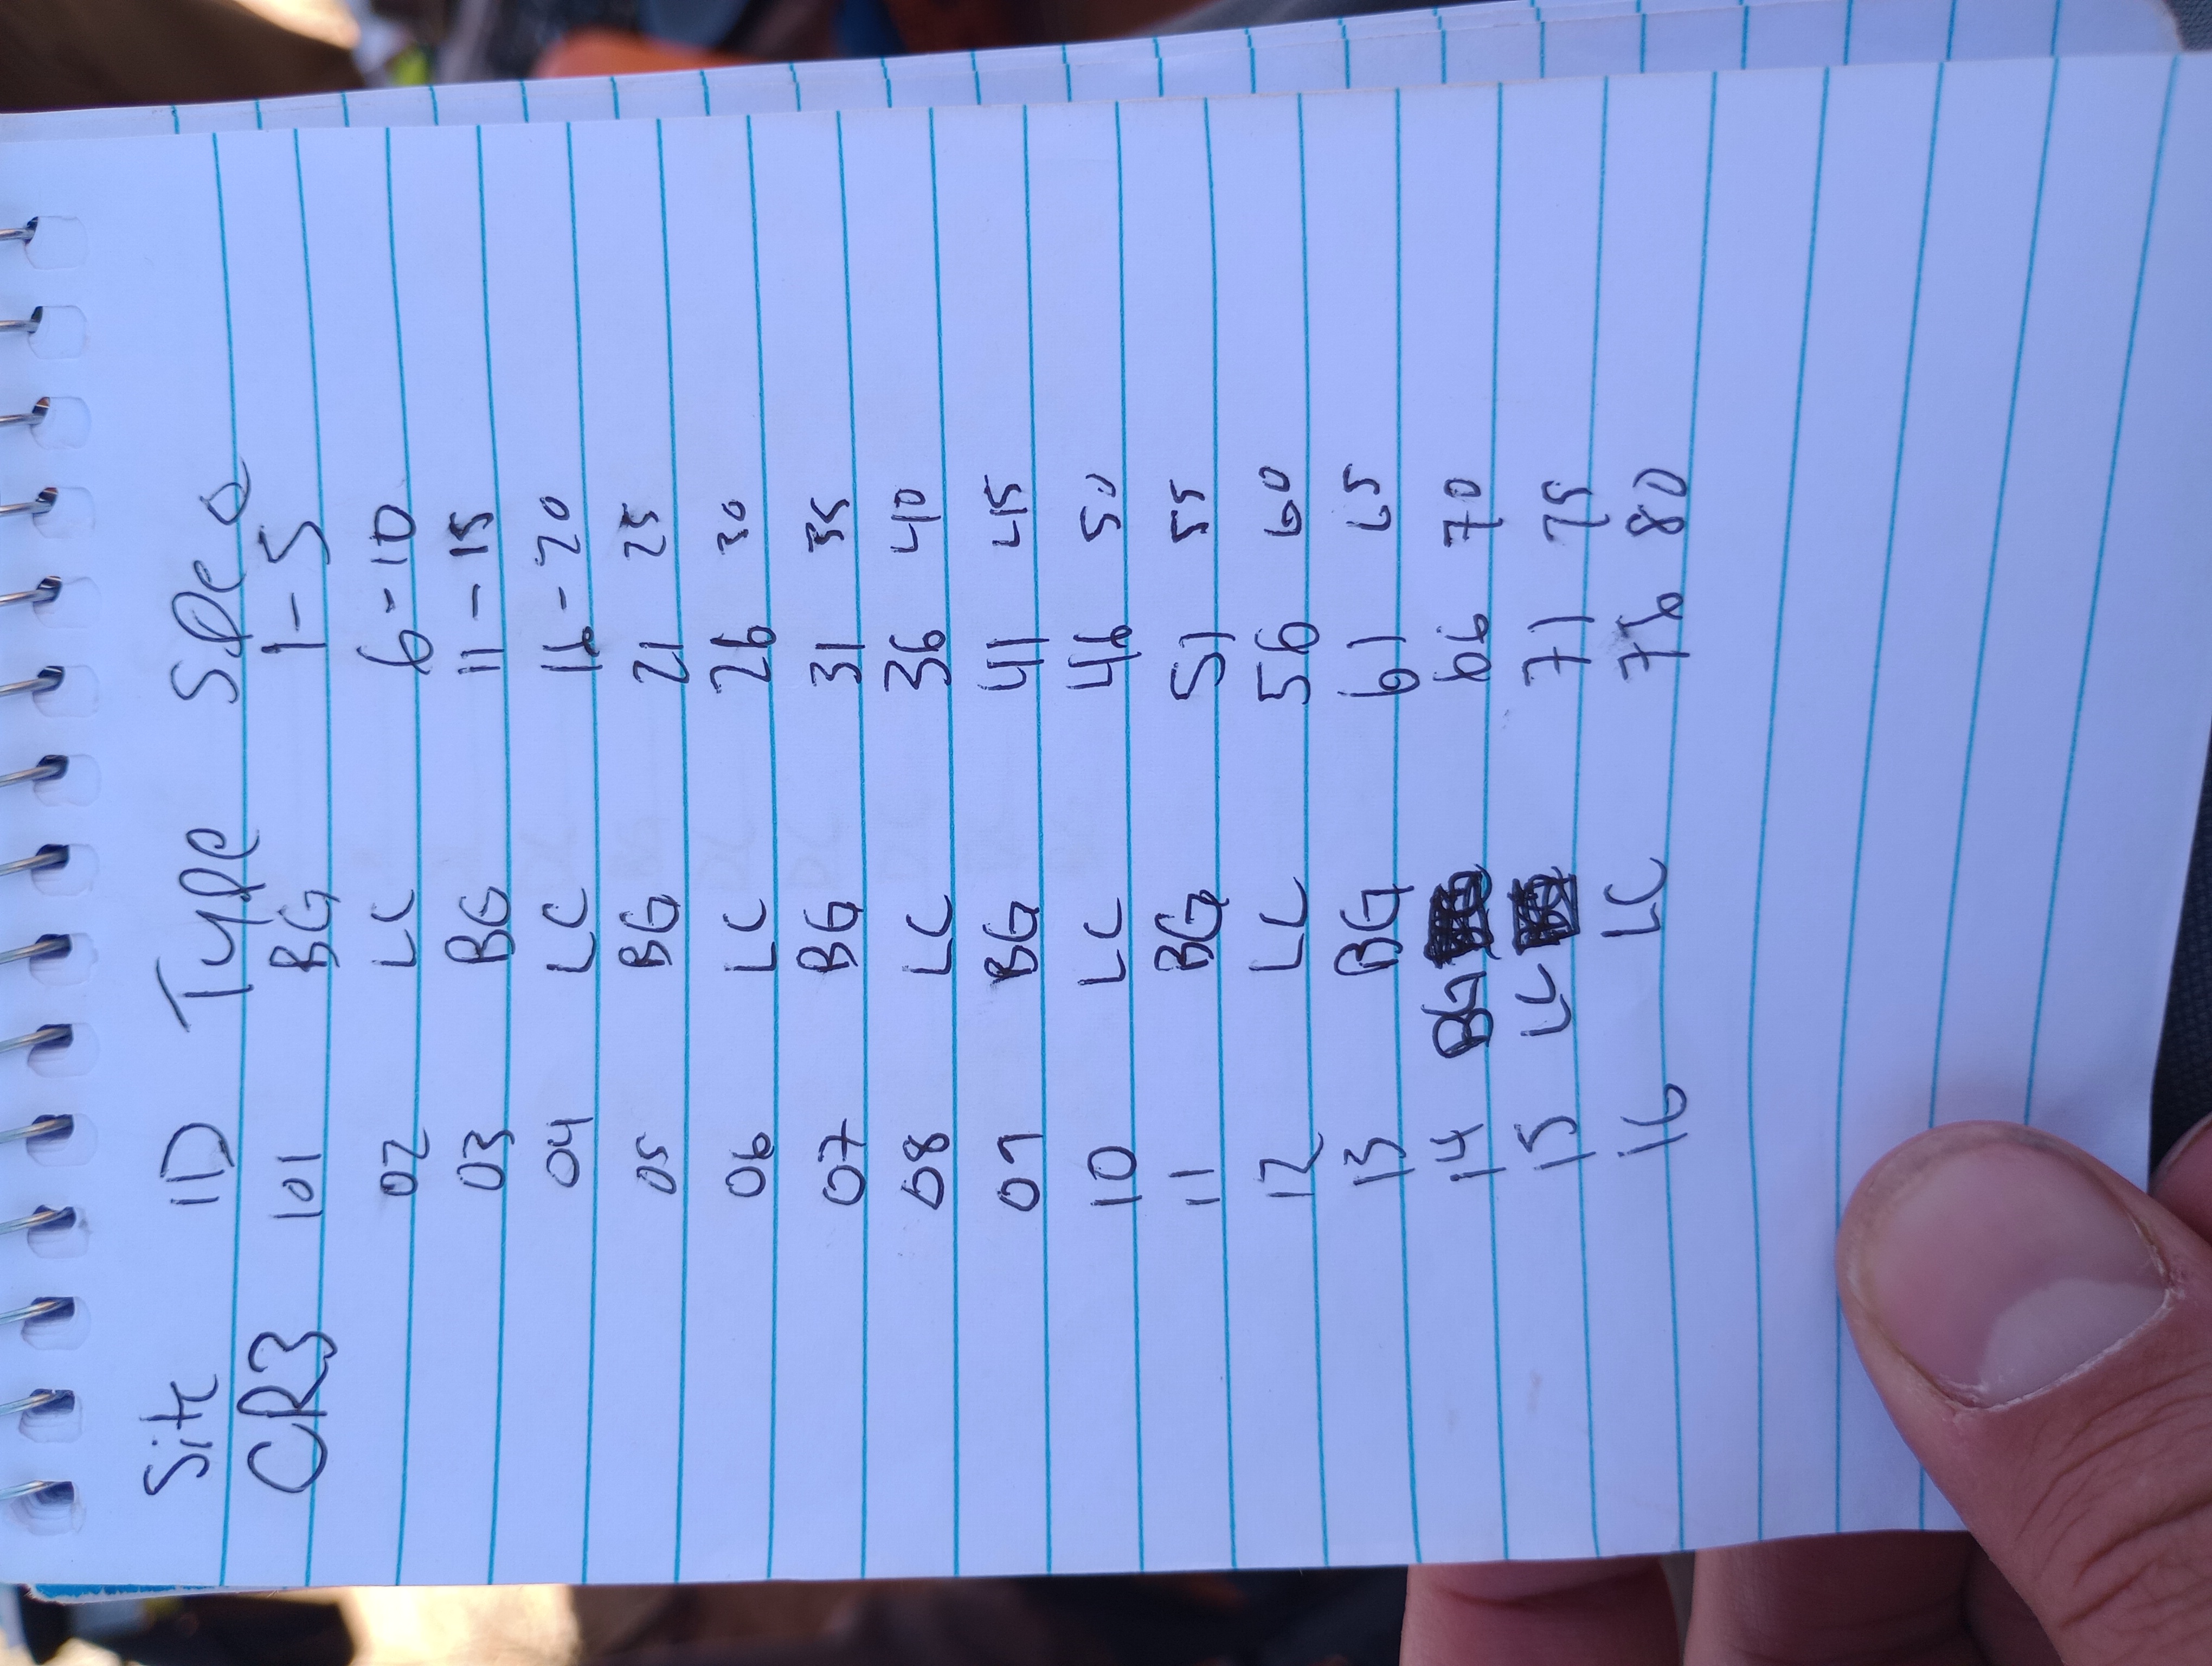 Site ID Type Spec
CR3 101 BG 1-5
02 LC 6-10
03 BG 11-15
04 LC 16-20
05 BG 21 25
06 LC 26 30
07 BG 31 35
08 LC 36 40
09 BG 41 45
10 LC 46 50
11 BG 51 55
12 LC 56 60
13 BG 61 65
14 BG 66 70
15 LC 71 75
16 LC 76 80